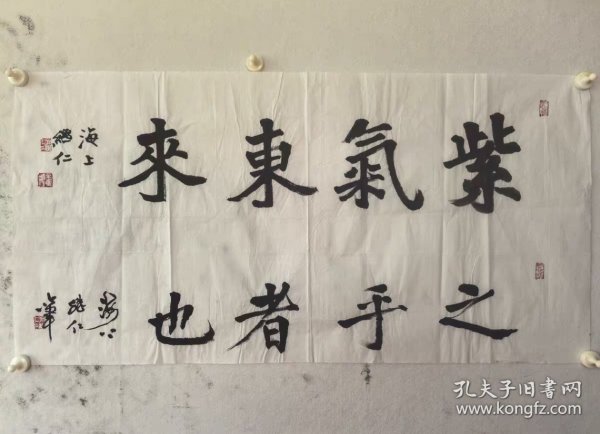 紫氣東來
海上
繼仁
之乎者也
海上
繼仁
孔夫子旧書网
www.kongfz.com